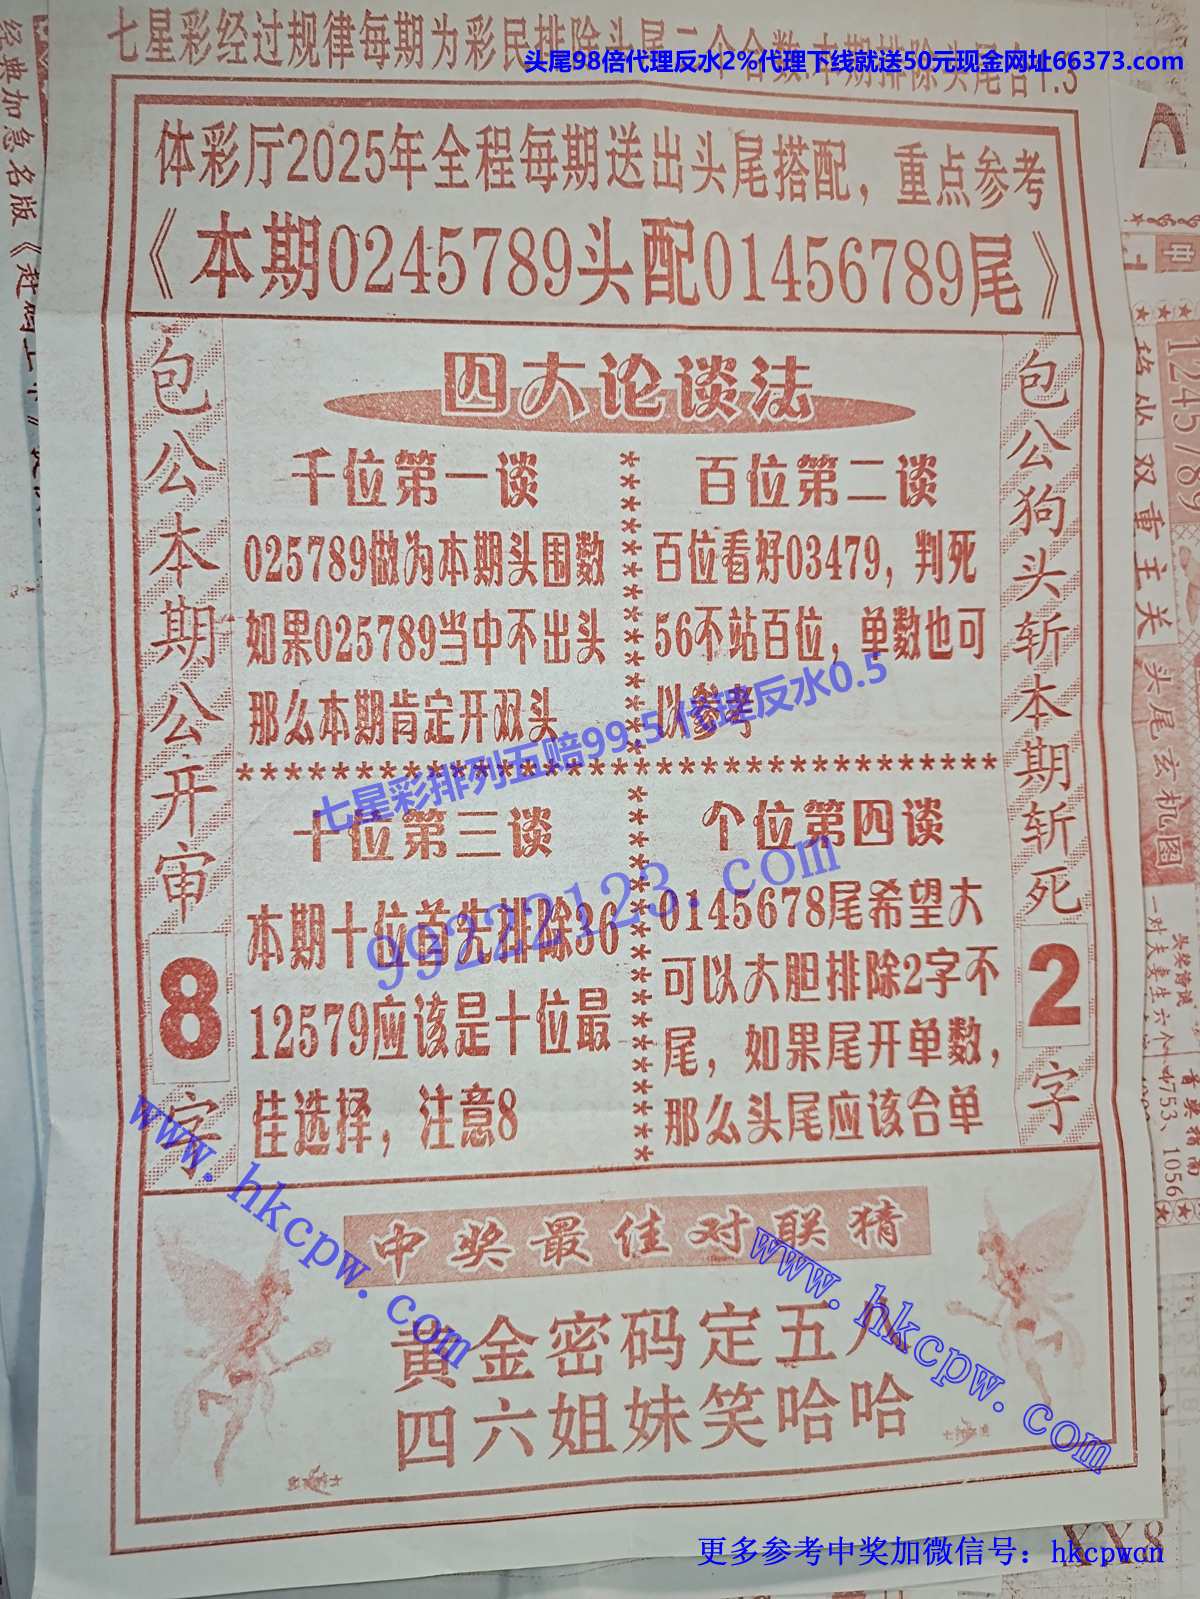 七星彩经过规律每期为彩民排除头尾二个合数.本期排除头尾合1.3
头尾98倍代理反水2%代理下线就送50元现金网址66373.com
体彩厅2025年全程每期送出头尾搭配，重点参考
《本期0245789头配01456789尾》
包公本期公开审8字
四大论谈法
千位第一谈
025789做为本期头围数
如果025789当中不出头
那么本期肯定开双头
百位第二谈
百位看好03479，判死
56不站百位，单数也可
以参考
七星彩排列五赔99.5 代理反水0.5
十位第三谈
本期十位首先排除36
12579应该是十位最
佳选择，注意8
个位第四谈
0145678尾希望大
可以大胆排除2字不
尾，如果尾开单数，
那么头尾应该合单
99222123.com
包公狗头斩本期斩死2字
中奖最佳对联猜
黄金密码定五八
四六姐妹笑哈哈
www.hkcpw.com
www.hkcpw.com
更多参考中奖加微信号：hkcpwcn
经典加急名版
1245789
双重主关
头尾玄机图